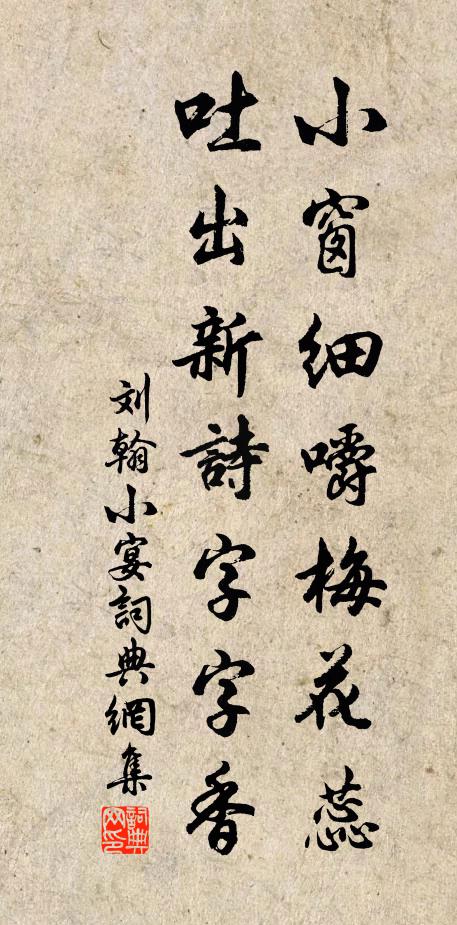 小窗细嚼梅花蕊
吐出新詩字字香
刘翰小宴詞典網集
詞典網印